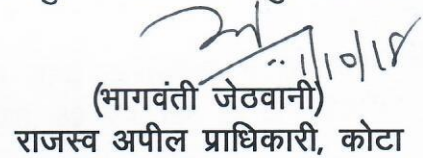 1/10/18
(भागवंती जेठवानी)
राजस्व अपील प्राधिकारी, कोटा